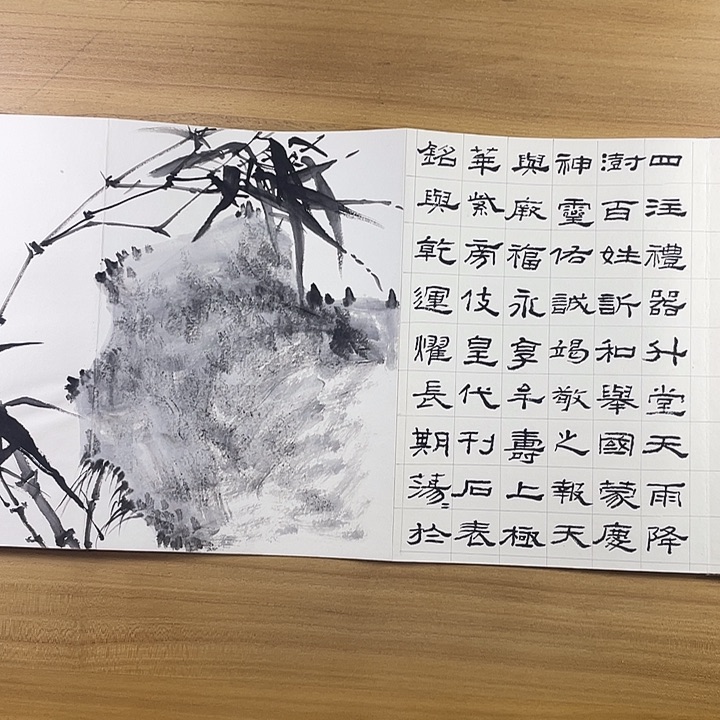 四注禮器升堂天雨降
澍百姓訢和舉國蒙慶
神靈佑誠竭敬之報天
與厥福永享牟壽上極
華紫旁伎皇代刊石表
銘與乾運燿長期蕩=於